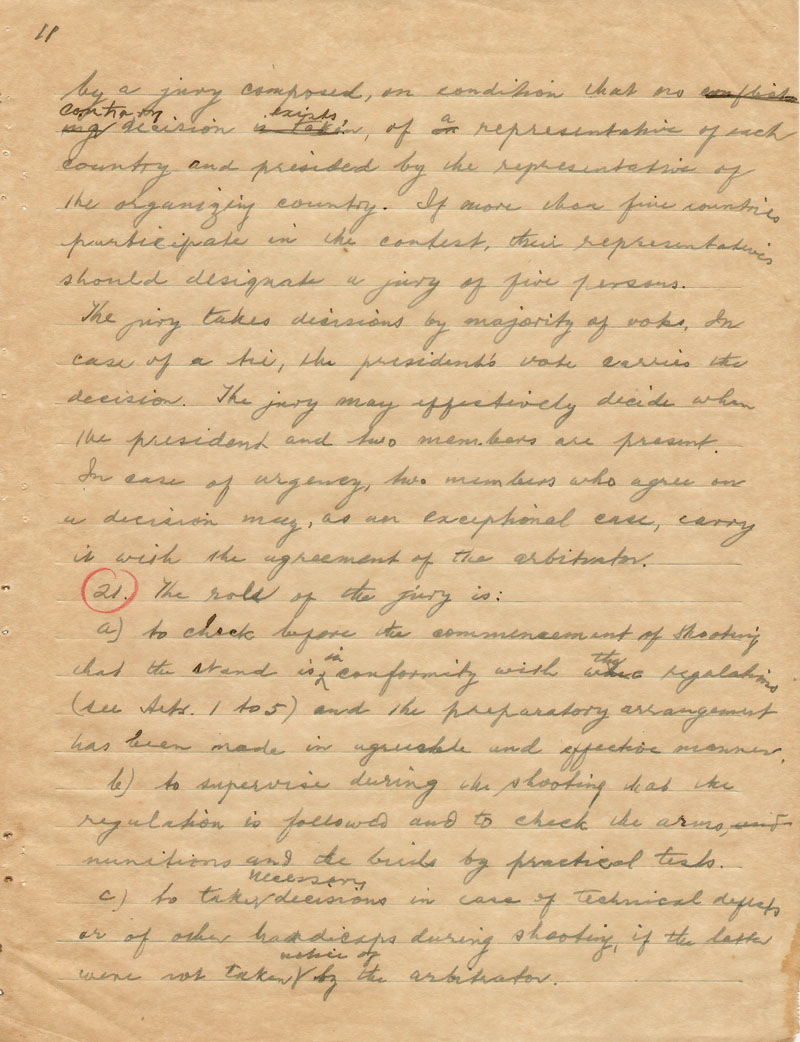 11
by a jury composed, on condition that no conflict-
contrary exists a
ing decision is taken, of an representative of each
country and presided by the representative of
the organizing country. If more than five countries
participate in the contest, their representatives
should designate a jury of five persons.
The jury takes decisions by majority of vote. In
case of a tie, the president's vote carries the
decision. The jury may effectively decide when
the president and two members are present.
In case of urgency, two members who agree on
a decision may, as an exceptional case, carry
it with the agreement of the arbitrator.
21. The role of the jury is:
a) to check before the commencement of shooting
in the
that the stand is conformity with regulations
(see Arts. 1 to 5) and the preparatory arrangement
has been made in agreeable and effective manner.
b) to supervise during the shooting that the
regulation is followed and to check the arms, and
munitions and the birds by practical tests.
necessary
c) to take decisions in case of technical defects
or of other handicaps during shooting, if the latter
notice of
were not taken by the arbitrator.